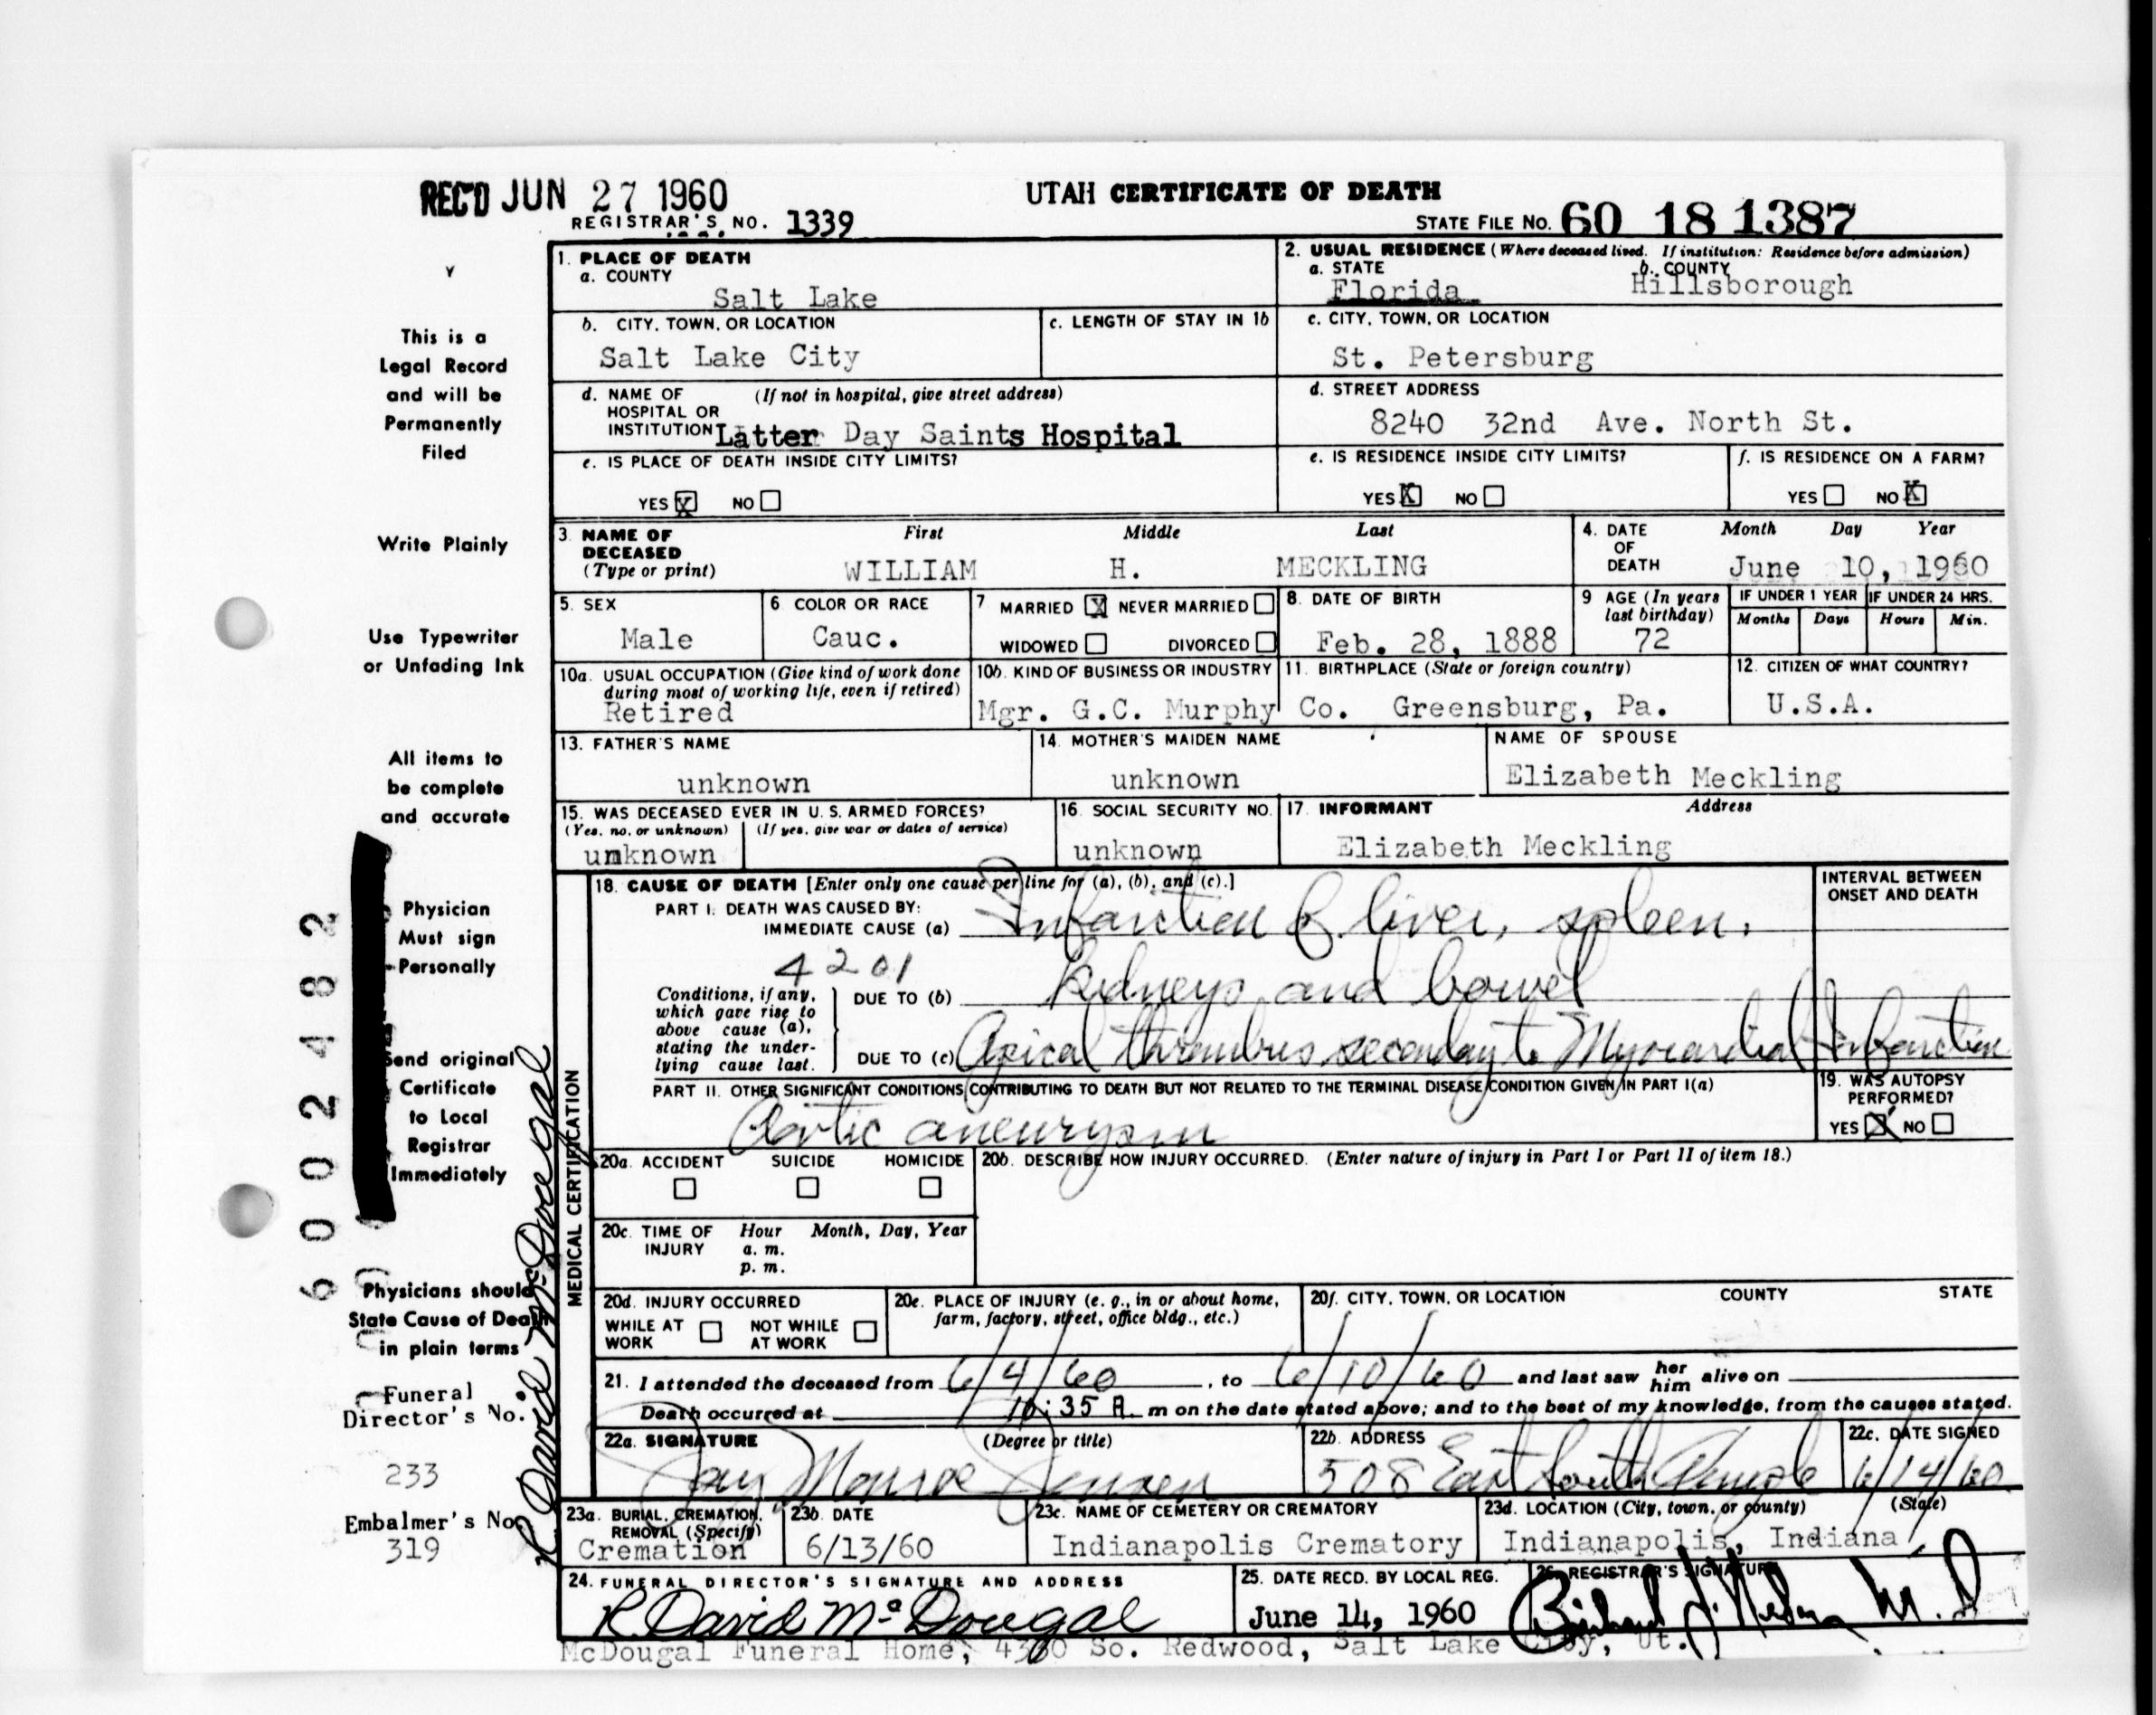 REC'D JUN 27 1960
UTAH CERTIFICATE OF DEATH
REGISTRAR'S NO. 1339
STATE FILE NO. 60 18 1387
This is a
Legal Record
and will be
Permanently
Filed
Write Plainly
Use Typewriter
or Unfading Ink
All items to
be complete
and accurate
Physician
Must sign
Personally
Send original
Certificate
to Local
Registrar
Immediately
Physicians should
State Cause of Death
in plain terms
Funeral
Director's No.
233
Embalmer's No.
319
6002482
R David McDougal
1. PLACE OF DEATH
a. COUNTY
Salt Lake
2. USUAL RESIDENCE (Where deceased lived. If institution: Residence before admission)
a. STATE b. COUNTY
Florida Hillsborough
b. CITY, TOWN, OR LOCATION
Salt Lake City
c. LENGTH OF STAY IN 1b
c. CITY, TOWN, OR LOCATION
St. Petersburg
d. NAME OF (If not in hospital, give street address)
HOSPITAL OR
INSTITUTION Latter Day Saints Hospital
d. STREET ADDRESS
8240 32nd Ave. North St.
e. IS PLACE OF DEATH INSIDE CITY LIMITS?
YES X NO
e. IS RESIDENCE INSIDE CITY LIMITS?
YES X NO
f. IS RESIDENCE ON A FARM?
YES NO X
3. NAME OF First Middle Last
DECEASED
(Type or print) WILLIAM H. MECKLING
4. DATE Month Day Year
OF
DEATH June 10, 1960
5. SEX
Male
6 COLOR OR RACE
Cauc.
7 MARRIED X NEVER MARRIED
WIDOWED DIVORCED
8. DATE OF BIRTH
Feb. 28, 1888
9 AGE (In years
last birthday)
72
IF UNDER 1 YEAR IF UNDER 24 HRS.
Months Days Hours Min.
10a. USUAL OCCUPATION (Give kind of work done
during most of working life, even if retired)
Retired
10b. KIND OF BUSINESS OR INDUSTRY
Mgr. G.C. Murphy Co.
11. BIRTHPLACE (State or foreign country)
Greensburg, Pa.
12. CITIZEN OF WHAT COUNTRY?
U.S.A.
13. FATHER'S NAME
unknown
14. MOTHER'S MAIDEN NAME
unknown
NAME OF SPOUSE
Elizabeth Meckling
15. WAS DECEASED EVER IN U. S. ARMED FORCES?
(Yes, no, or unknown) (If yes, give war or dates of service)
unknown
16. SOCIAL SECURITY NO.
unknown
17. INFORMANT Address
Elizabeth Meckling
MEDICAL CERTIFICATION
18. CAUSE OF DEATH [Enter only one cause per line for (a), (b), and (c).]
INTERVAL BETWEEN
ONSET AND DEATH
PART I. DEATH WAS CAUSED BY:
IMMEDIATE CAUSE (a) Infarction of liver, spleen,
4201
Conditions, if any,
which gave rise to
above cause (a),
stating the under-
lying cause last.
DUE TO (b) kidneys, and bowel
DUE TO (c) Apical thrombus secondary to Myocardial Infarction
PART II. OTHER SIGNIFICANT CONDITIONS CONTRIBUTING TO DEATH BUT NOT RELATED TO THE TERMINAL DISEASE CONDITION GIVEN IN PART I(a)
Aortic aneurysm
19. WAS AUTOPSY
PERFORMED?
YES X NO
20a. ACCIDENT SUICIDE HOMICIDE
20b. DESCRIBE HOW INJURY OCCURRED. (Enter nature of injury in Part I or Part II of item 18.)
20c. TIME OF Hour Month, Day, Year
INJURY a. m.
p. m.
20d. INJURY OCCURRED
WHILE AT NOT WHILE
WORK AT WORK
20e. PLACE OF INJURY (e. g., in or about home,
farm, factory, street, office bldg., etc.)
20f. CITY, TOWN, OR LOCATION COUNTY STATE
21. I attended the deceased from 6/4/60, to 6/10/60 and last saw her him alive on
Death occurred at 10:35 A. m on the date stated above; and to the best of my knowledge, from the causes stated.
22a. SIGNATURE (Degree or title)
Jay Monroe Jensen
22b. ADDRESS
508 East South Temple
22c. DATE SIGNED
6/14/60
23a. BURIAL, CREMATION,
REMOVAL (Specify)
Cremation
23b. DATE
6/13/60
23c. NAME OF CEMETERY OR CREMATORY
Indianapolis Crematory
23d. LOCATION (City, town, or county) (State)
Indianapolis, Indiana
24. FUNERAL DIRECTOR'S SIGNATURE AND ADDRESS
R. David McDougal
25. DATE RECD. BY LOCAL REG.
June 14, 1960
26. REGISTRAR'S SIGNATURE
M.D
McDougal Funeral Home, So. Redwood, Salt Lake City, Ut.